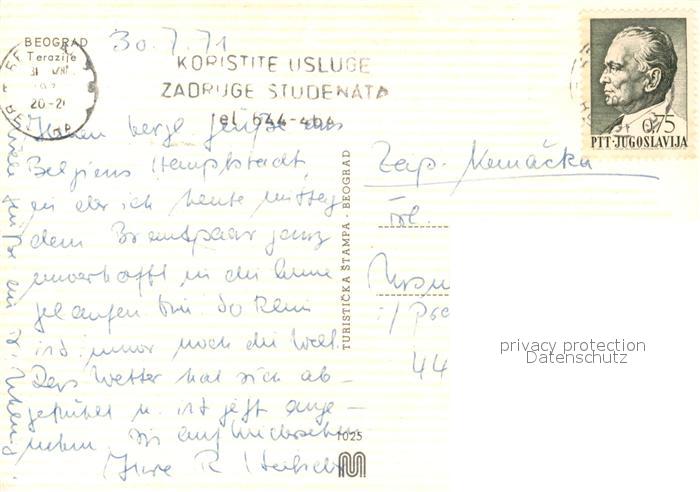 BEOGRAD
Terazije
20-2
30.7.71
KORISTITE USLUGE
ZADRUGE STUDENATA
Tel. 644-464
0,75
PTT-JUGOSLAVIJA
Ihnen herzl. Grüße aus
Belgiens Hauptstadt,
in der ich heute mittag
dem Brautpaar ganz
unverhofft in die Arme
gelaufen bin. So klein
ist immer noch die Welt.
Das Wetter hat sich ab-
gekühlt u. ist jetzt ange-
nehm. Bis auf Wiedersehen
Ihre R.
viele Grüße an
Zap. Nemačka
Frl.
44
TURISTIČKA ŠTAMPA - BEOGRAD
1025
privacy protection
Datenschutz